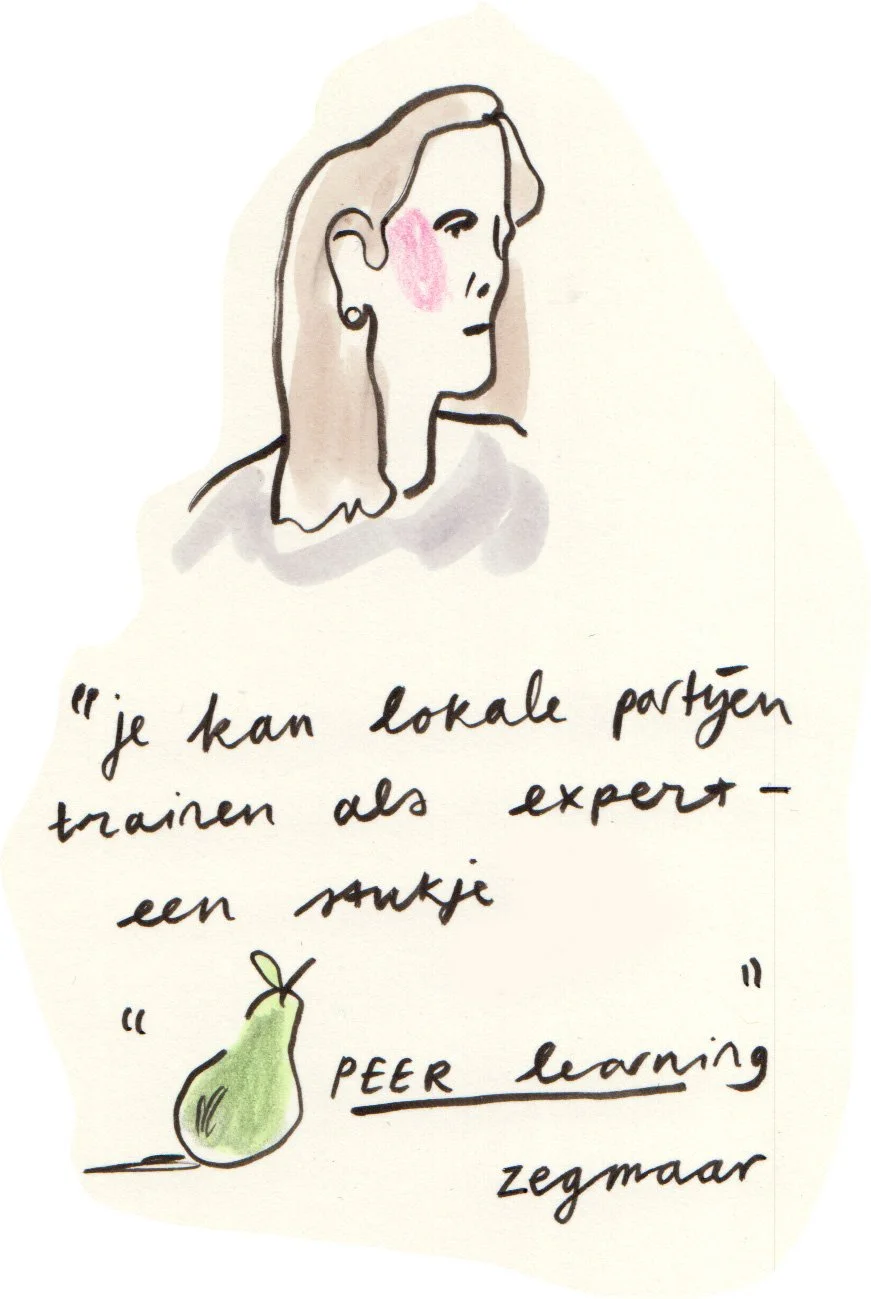 "je kan lokale partijen
trainen als expert -
een stukje
" PEER learning "
zegmaar